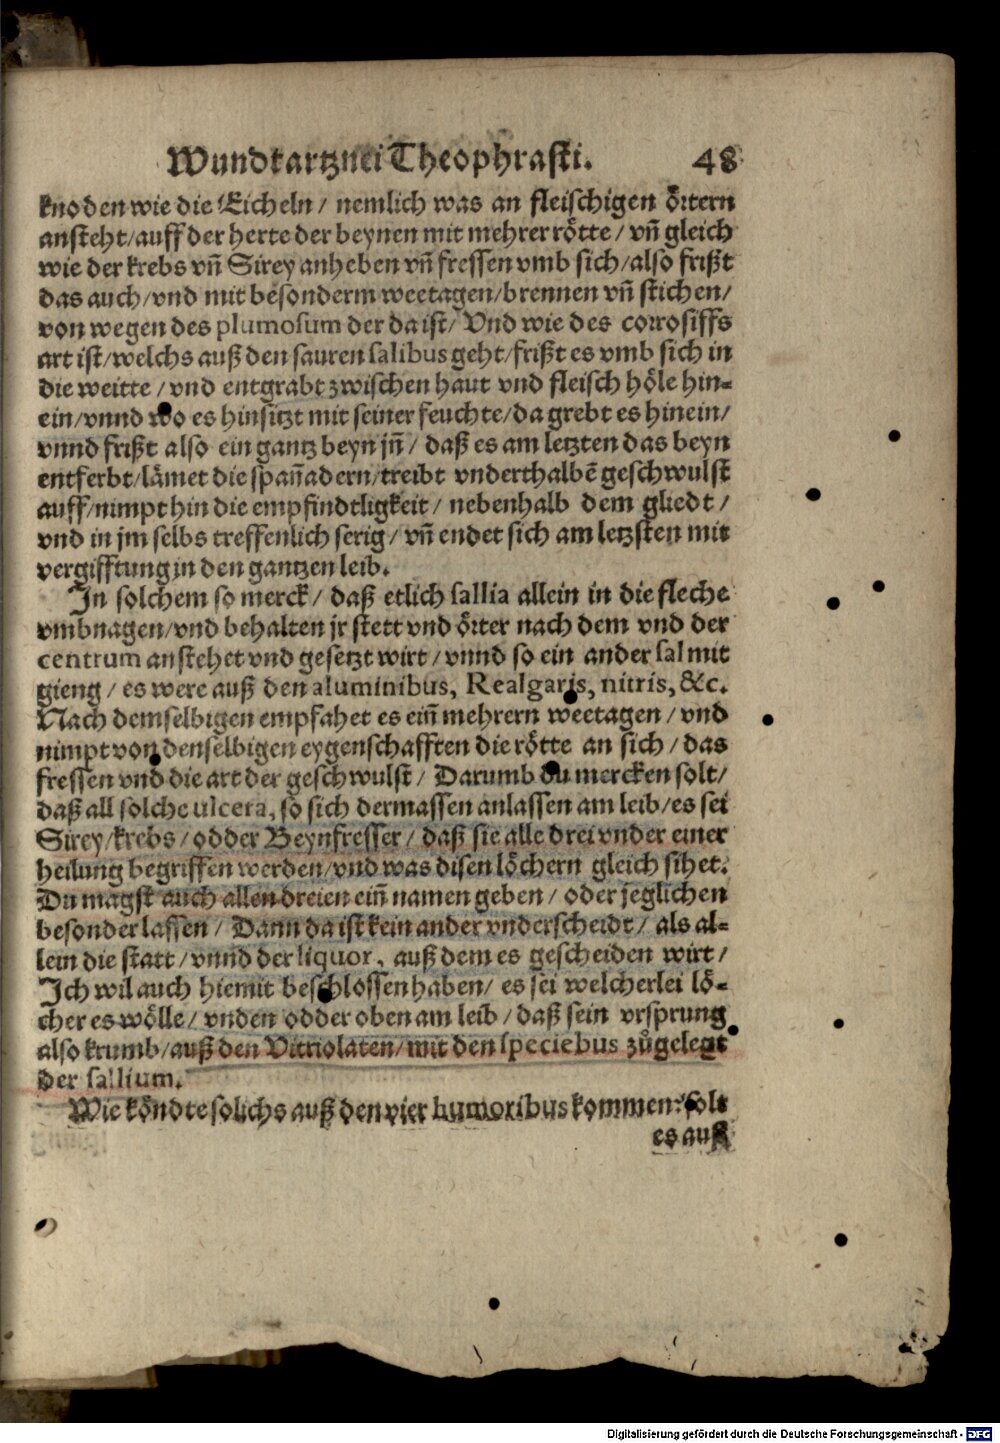 Wundtartznei Theophrasti. 48
knoden wie die Eicheln / nemlich was an fleischigen örtern
ansteht / auff der herte der beynen mit mehrer rötte / vñ gleich
wie der krebs vñ Sirey anheben vñ fressen vmb sich / also frißt
das auch / vnd mit besonderm weetagen / brennen vñ stichen /
von wegen des plumosum der da ist / Vnd wie des corrosiffs
art ist / welchs auß den sauren salibus geht / frißt es vmb sich in
die weitte / vnd entgrabt zwischen haut vnd fleisch höle hin=
ein / vnnd wo es hinsitzt mit seiner feuchte / da grebt es hinein /
vnnd frißt also ein gantz beyn jñ / daß es am letzten das beyn
entferbt / lämet die spañadern / treibt vnderthalbē geschwulst
auff / nimpt hin die empfindtligkeit / nebenhalb dem gliedt /
vnd in jm selbs treffenlich serig / vñ endet sich am letzsten mit
vergifftung in den gantzen leib.
In solchem so merck / daß etlich sallia allein in die fleche
vmbnagen / vnd behalten jr stett vnd örter nach dem vnd der
centrum anstehet vnd gesetzt wirt / vnnd so ein ander sal mit
gieng / es were auß den aluminibus, Realgaris, nitris, &c.
Nach demselbigen empfahet es eiñ mehrern weetagen / vnd
nimpt von denselbigen eygenschafften die rötte an sich / das
fressen vnd die art der geschwulst / Darumb du mercken solt /
daß all solche ulcera, so sich dermassen anlassen am leib / es sei
Sirey / krebs / odder Beynfresser / daß sie alle drei vnder einer
heilung begriffen werden / vnd was disen löchern gleich sihet.
Du magst auch allen dreien eiñ namen geben / oder jeglichen
besonder lassen / Dann da ist kein ander vnderscheidt / als al=
lein die statt / vnnd der liquor, auß dem es gescheiden wirt /
Ich wil auch hiemit beschlossen haben / es sei welcherlei lö=
cher es wölle / vnden odder oben am leib / daß sein vrsprung
also krumb / auß den Vitriolaten / mit den speciebus zůgelegt
der sallium.
Wie köndte solichs auß den vier humoribus kommen? solt
es auß
Digitalisierung gefördert durch die Deutsche Forschungsgemeinschaft - DFG